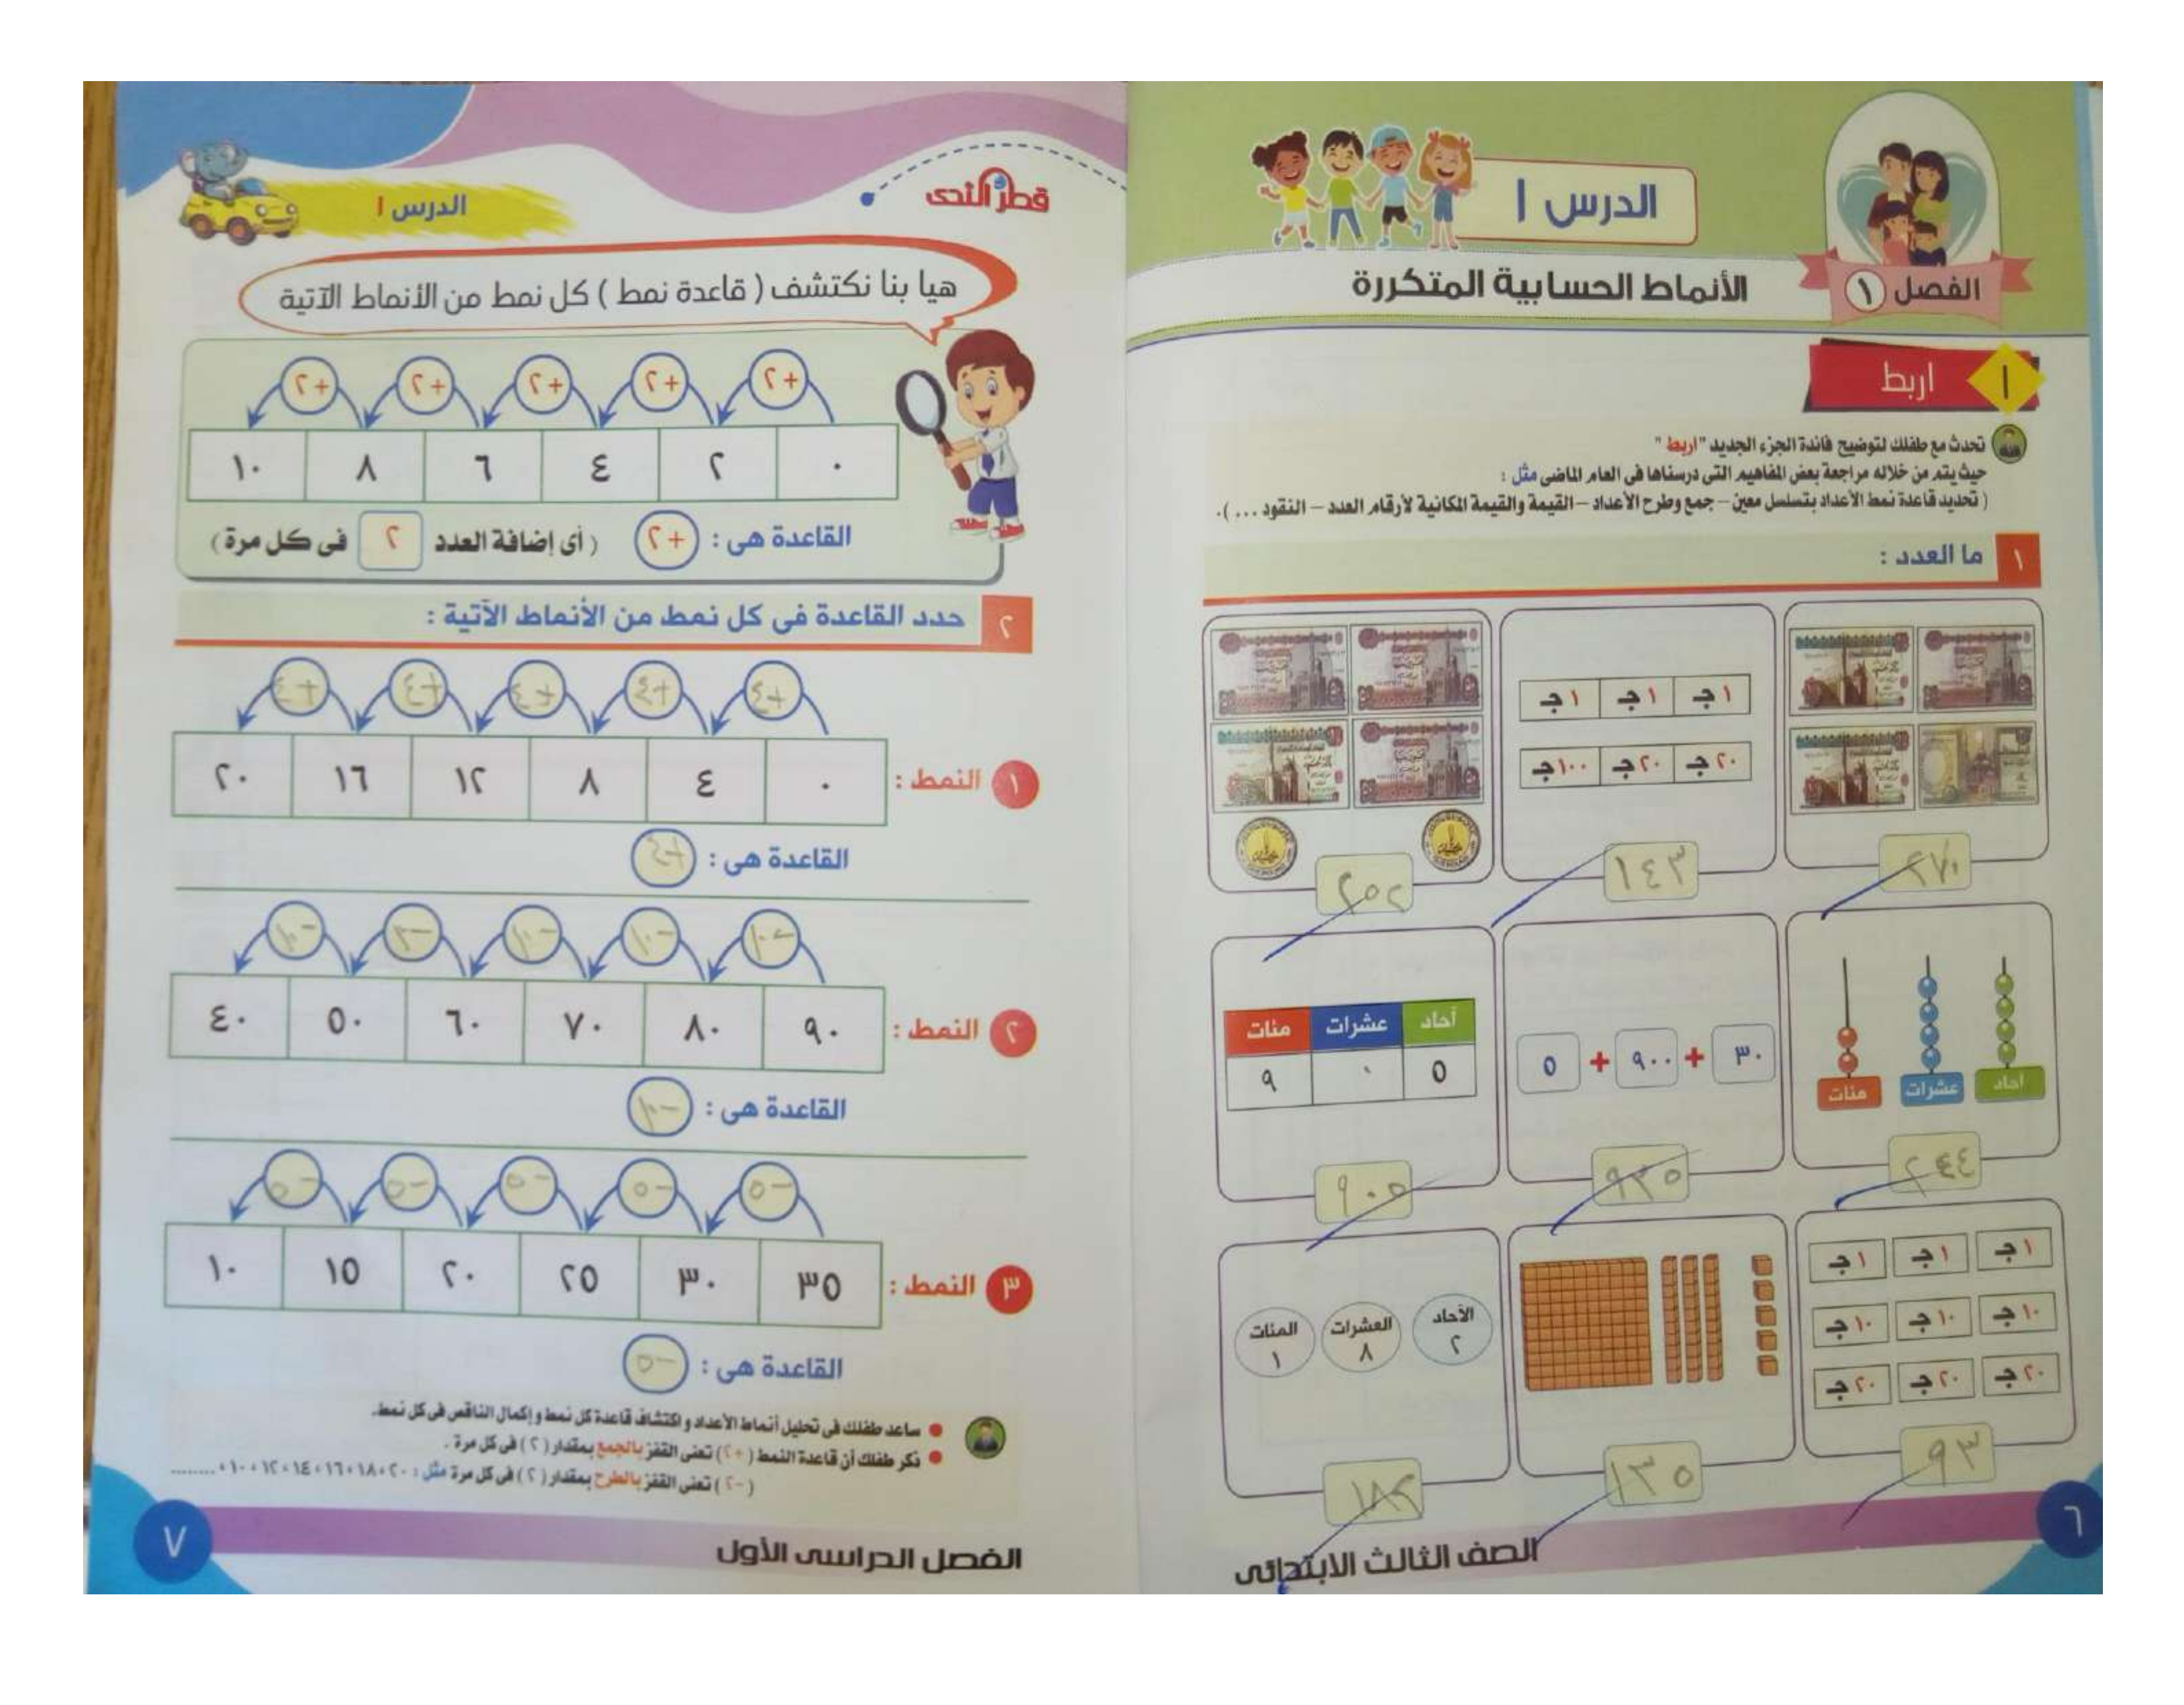 الفصل ١
الدرس ١
الأنماط الحسابية المتكررة
١ اربط
تحدث مع طفلك لتوضيح فائدة الجزء الجديد "اربط"
حيث يتم من خلاله مراجعة بعض المفاهيم التى درسناها فى العام الماضى مثل :
( تحديد قاعدة نمط الأعداد بتسلسل معين – جمع وطرح الأعداد – القيمة والقيمة المكانية لأرقام العدد – النقود ... ).
١ ما العدد :
١ج ١ج ١ج
٢٠ج ٢٠ج ١٠٠ج
٢٧٠ ١٤٣ ٢٥٢
آحاد عشرات مئات
٣٠ + ٩٠٠ + ٥
آحاد عشرات مئات
٥ ٠ ٩
٢٤٤ ٩٣٥ ٩٠٥
١ج ١ج ١ج
١٠ج ١٠ج ١٠ج
٢٠ج ٢٠ج ٢٠ج
الآحاد العشرات المئات
٢ ٨ ١
٩٣ ١٣٥ ١٨٢
الصف الثالث الابتدائى
٦
قطر الندى
الدرس ١
هيا بنا نكتشف ( قاعدة نمط ) كل نمط من الأنماط الآتية
+٢ +٢ +٢ +٢ +٢
٠ ٢ ٤ ٦ ٨ ١٠
القاعدة هى : +٢ ( أى إضافة العدد ٢ فى كل مرة )
٢ حدد القاعدة فى كل نمط من الأنماط الآتية :
+٤ +٤ +٤ +٤ +٤
١ النمط : ٠ ٤ ٨ ١٢ ١٦ ٢٠
القاعدة هى : +٤
-١٠ -١٠ -١٠ -١٠ -١٠
٢ النمط : ٩٠ ٨٠ ٧٠ ٦٠ ٥٠ ٤٠
القاعدة هى : -١٠
-٥ -٥ -٥ -٥ -٥
٣ النمط : ٣٥ ٣٠ ٢٥ ٢٠ ١٥ ١٠
القاعدة هى : -٥
ساعد طفلك فى تحليل أنماط الأعداد و اكتشاف قاعدة كل نمط و إكمال الناقص فى كل نمط.
ذكر طفلك أن قاعدة النمط ( +٢ ) تعنى القفز بالجمع بمقدار ( ٢ ) فى كل مرة .
( -٢ ) تعنى القفز بالطرح بمقدار ( ٢ ) فى كل مرة مثل : ٢٠ ، ١٨ ، ١٦ ، ١٤ ، ١٢ ، ١٠ ، ........
الفصل الدراسى الأول
٧